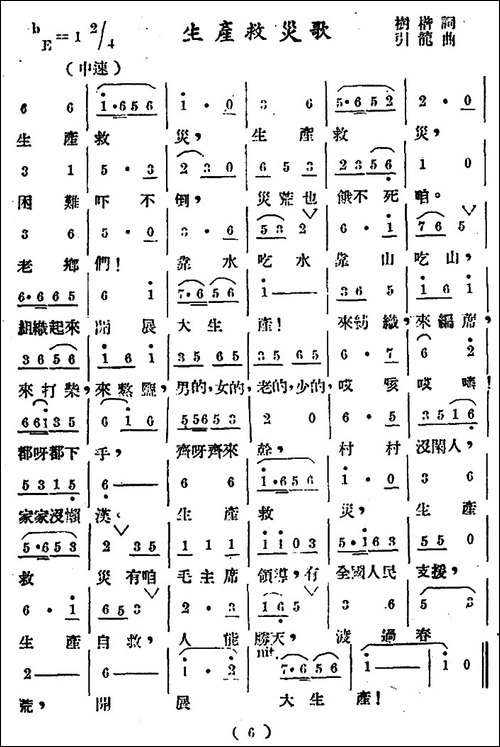 生產救災歌
樹楷詞
引龍曲
ᵇE=1 2/4
（中速）
6 6 i·656 i·0 3 6 5·652 2·0
生產救災，生產救災，
3 1 5·3 230 653 2356 1 0
困難吓不倒，災荒也餓不死咱。
3 6 5·0 3·6 532 6·i 765
老鄉們！靠水吃水靠山吃山，
6·665 6 i 7·656 i— 365 i6i
組織起來開展大生產！來紡織，來編蓆，
3656 i6i 35 65 35 65 6·7 6 2
來打柴，來熬鹽，男的，女的，老的，少的，哎咳哎嘿！
66i35 6i6 55653 2 0 6·5 35i6
都呀都下手，齊呀齊來幹，村村沒閑人，
53i5 6— 6 6 i·656 i·0 3 6
家家沒懶漢。生產救災，生產
5·653 2 35 1 1 1 1103 5·i63 550
救災有咱毛主席領導，有全國人民支援，
6·i 653 2·3 165 3·6 5 3
生產自救，人能勝天，渡過春
2— 6— i·2 7·656 i— i 0
荒，開展大生產！
rit.
（6）